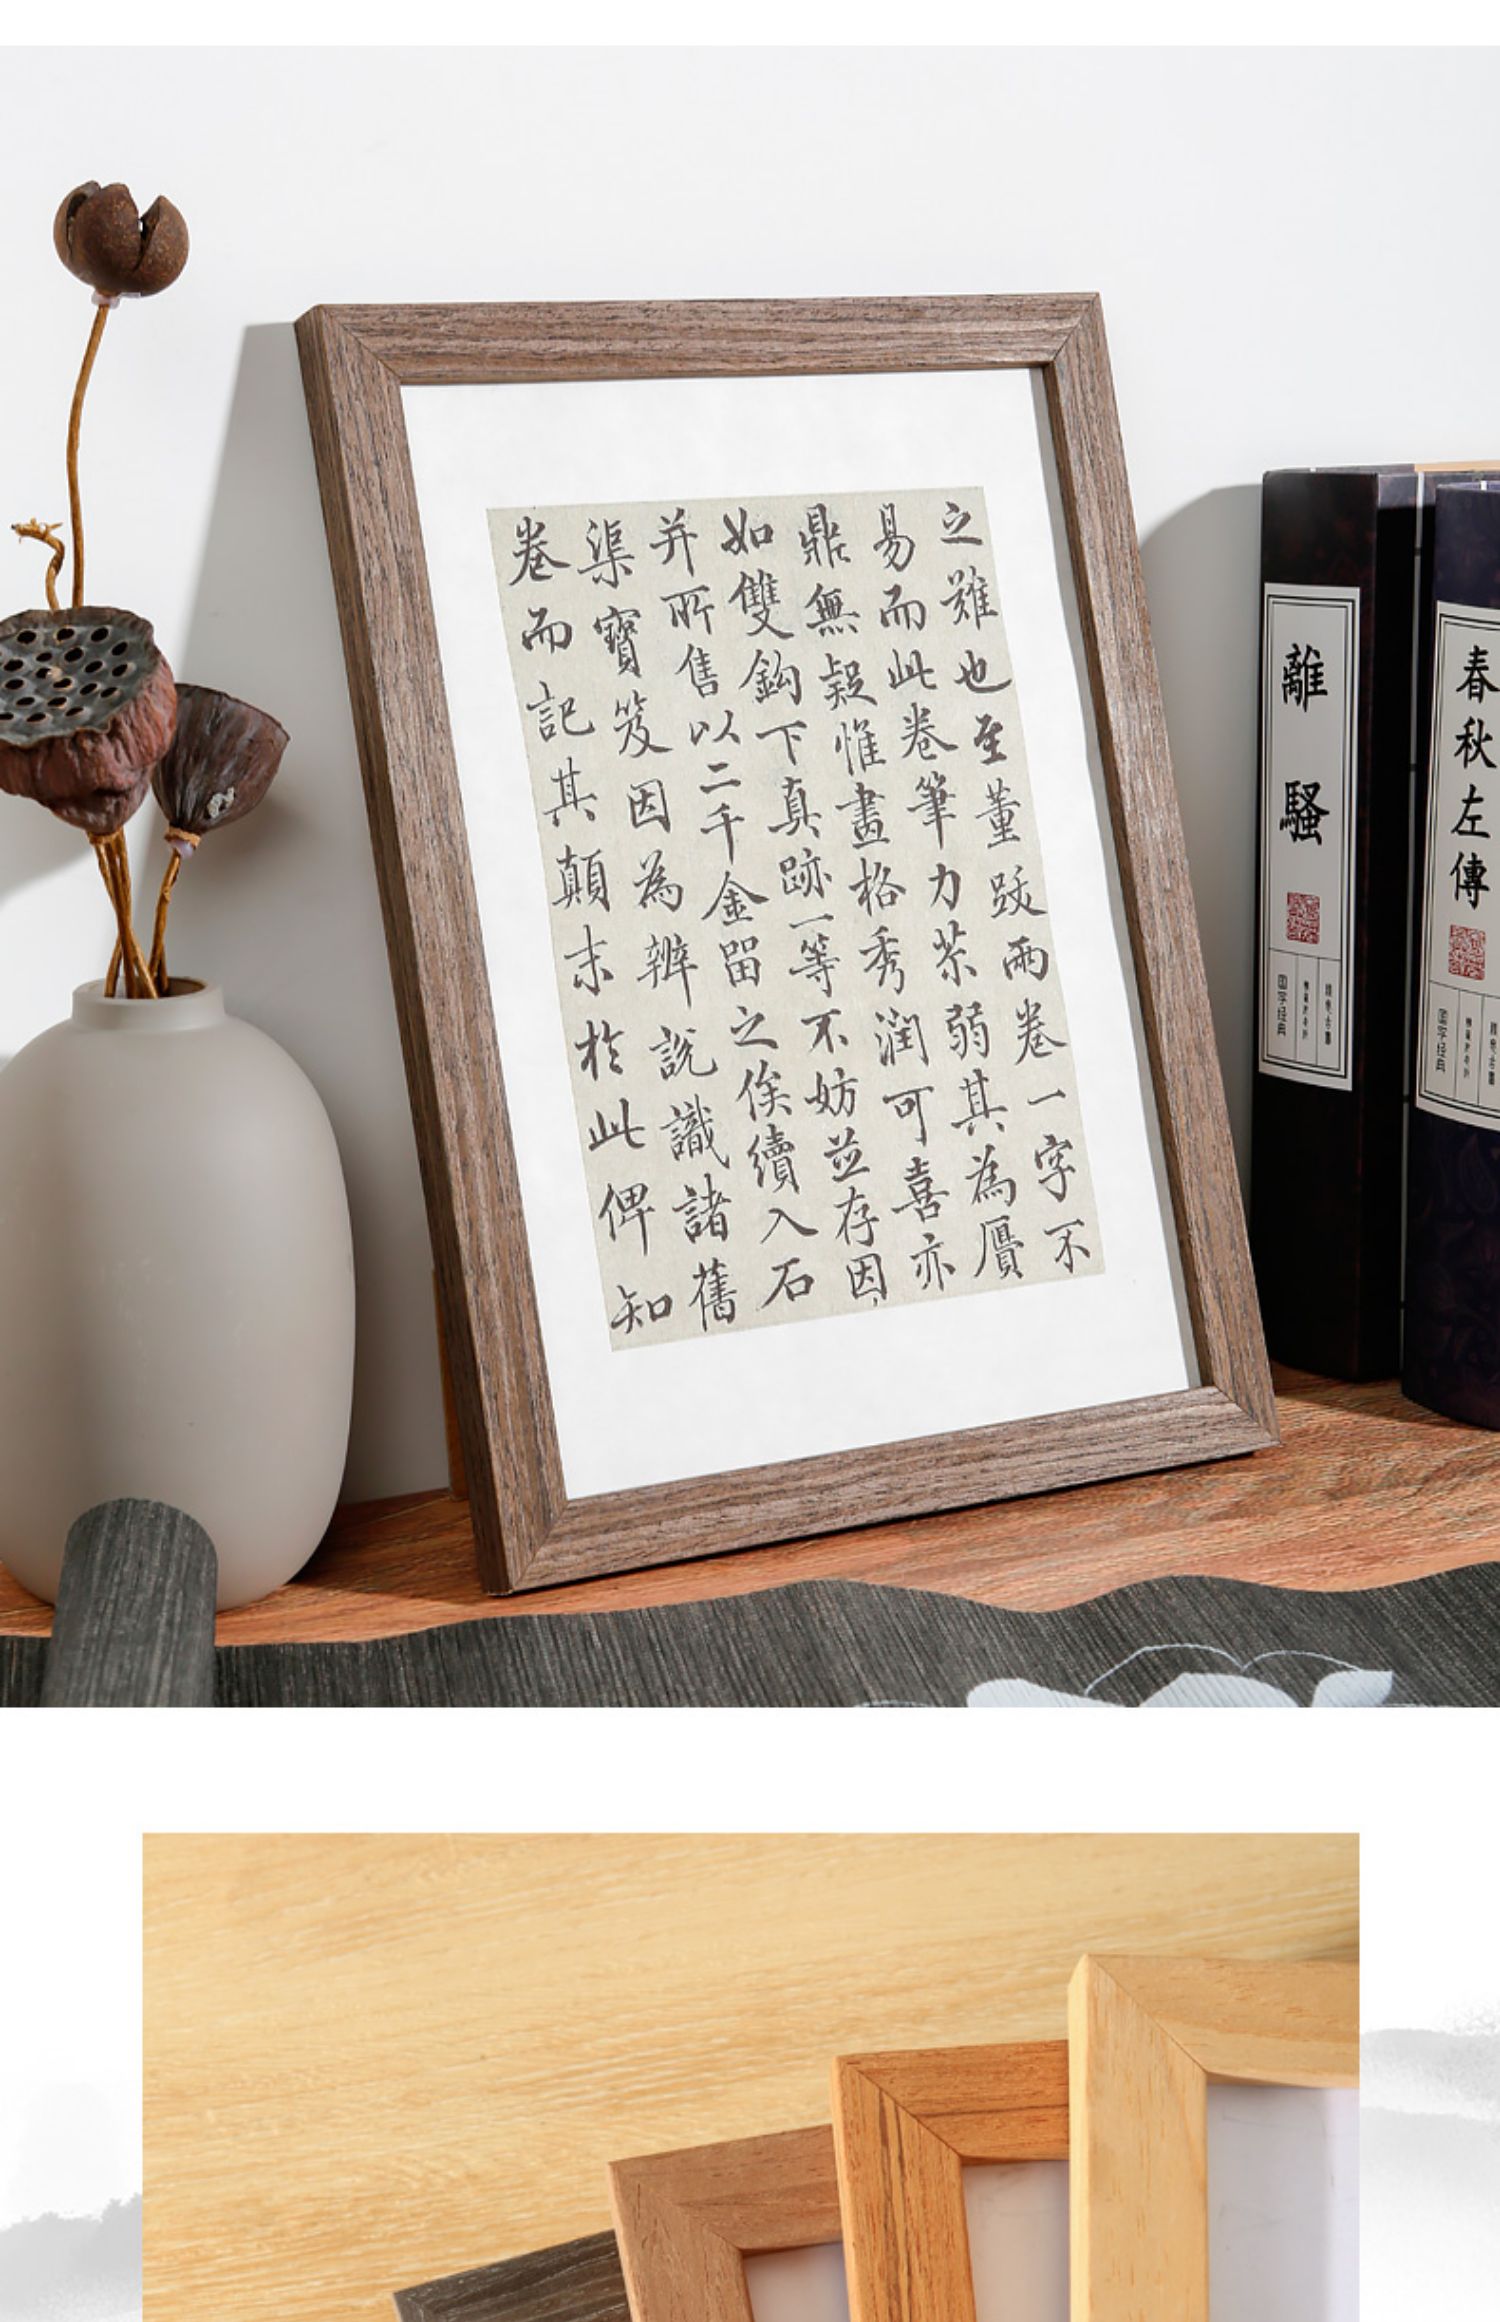 之難也至董跋兩卷一字不
易而此卷筆力苶弱其為贗
鼎無疑惟畫格秀潤可喜亦
如雙鈎下真跡一等不妨並存因
并所售以二千金留之俟續入石
渠寶笈因為辨說識諸舊
卷而記其顛末於此俾知
離騷
国学经典
春秋左傳
国学经典